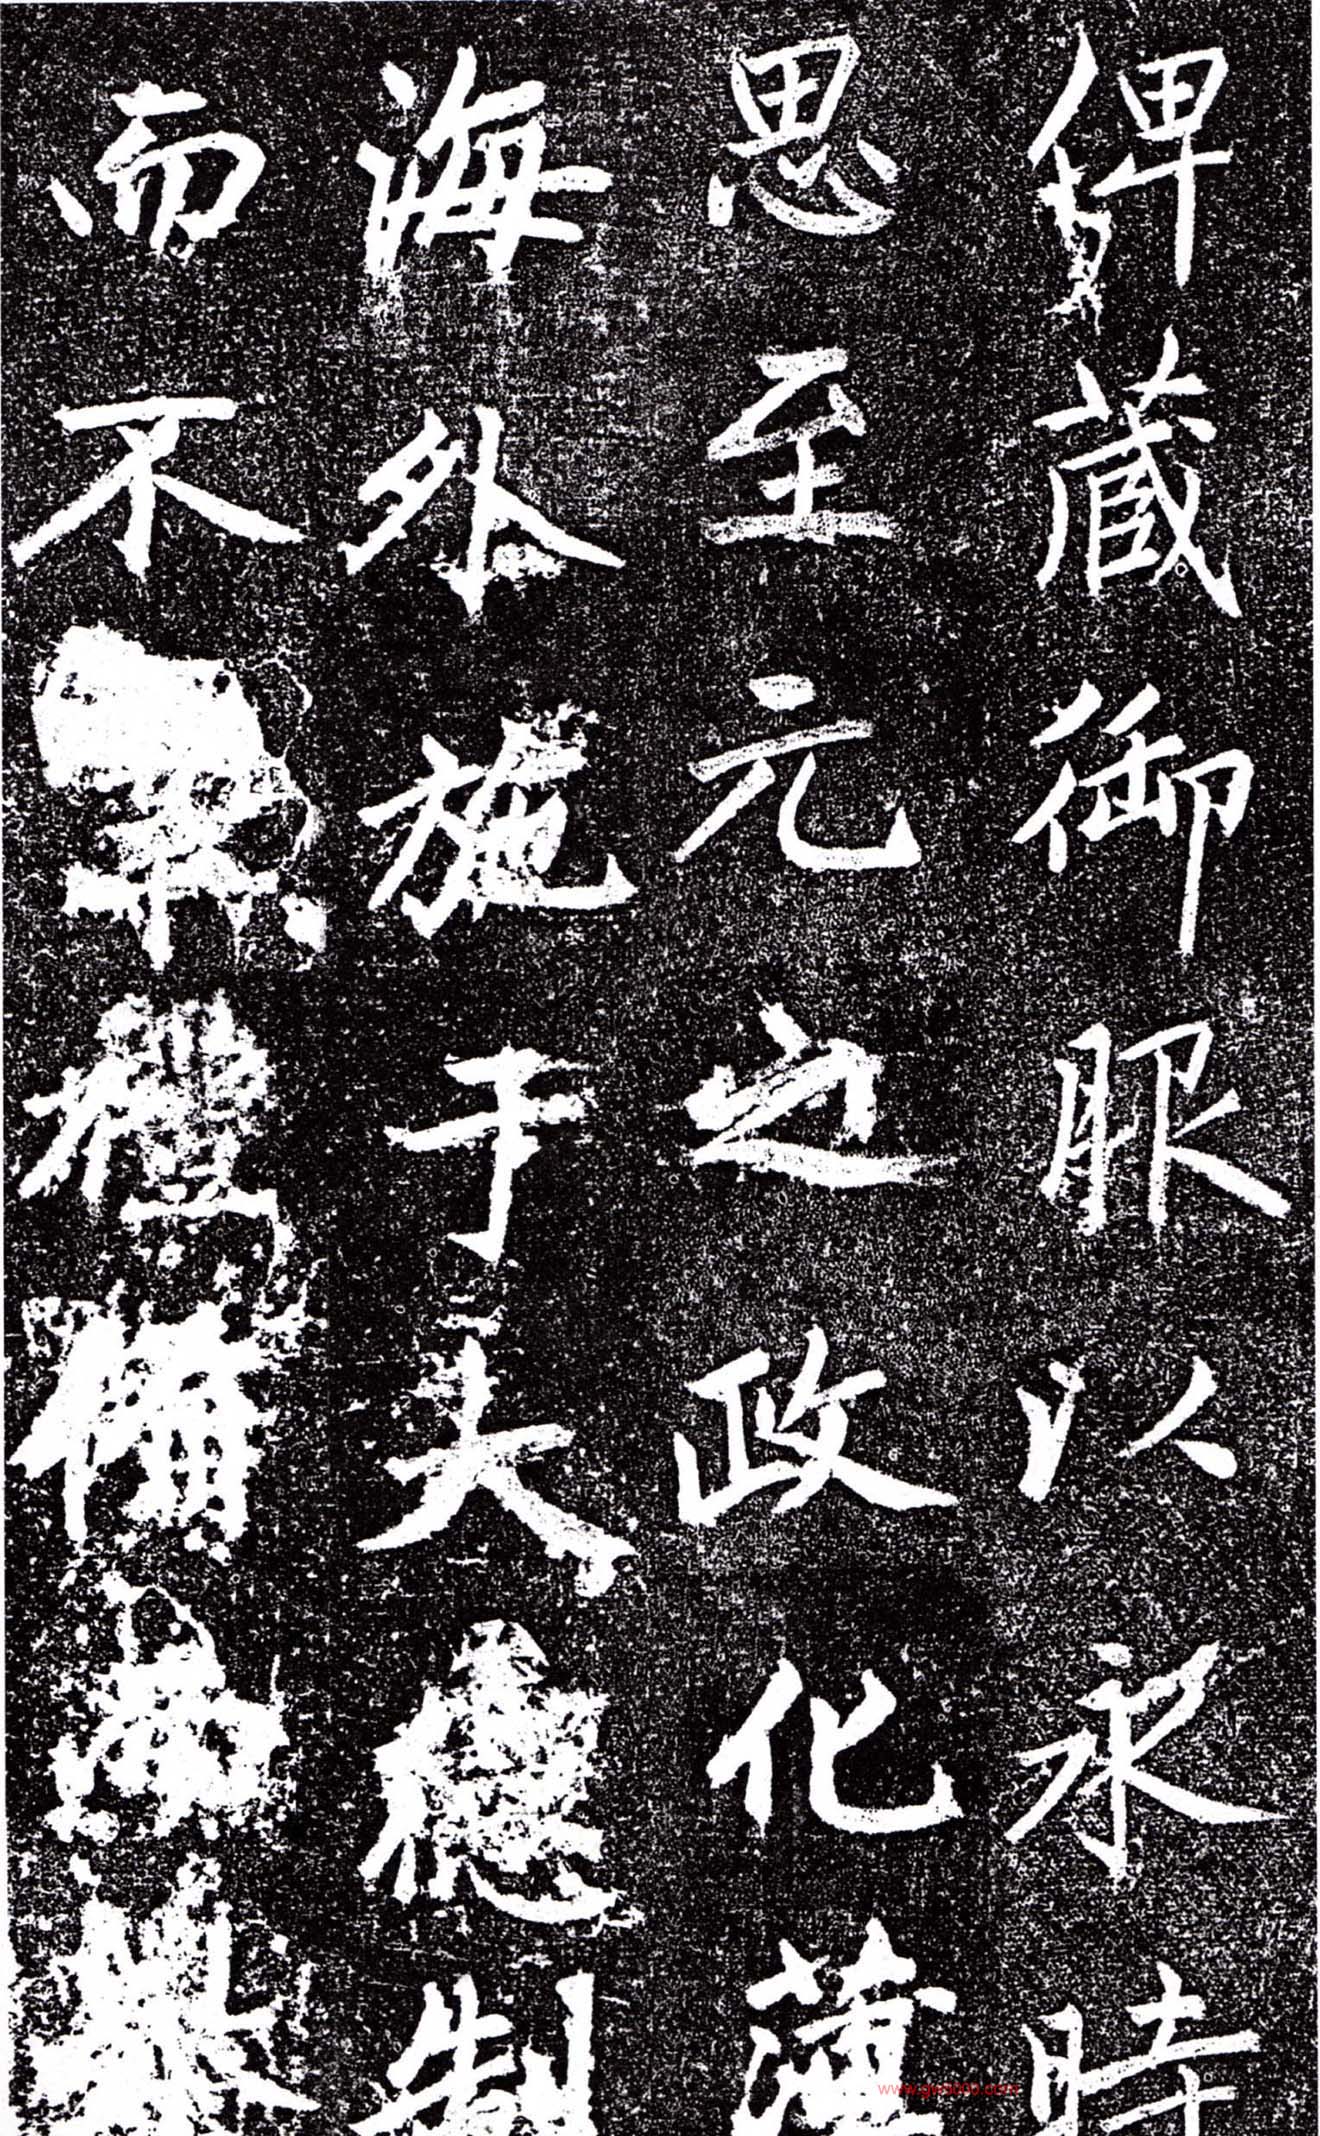 俾藏御服以永時
思至元之政化薄
海外施于大德制
而不業禮備
www.gws000.com